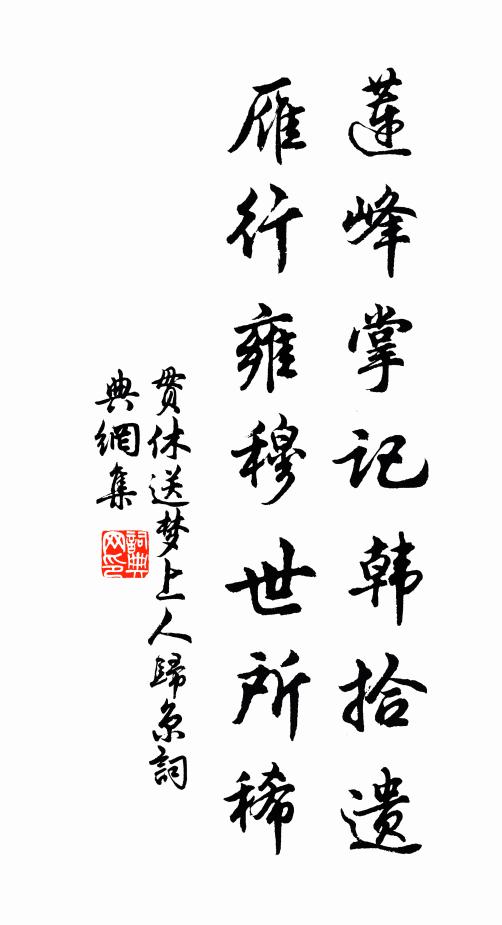 蓮峰掌记韩拾遗
雁行雍穆世所稀
贯休送梦上人歸京詞
典網集
詞典网印